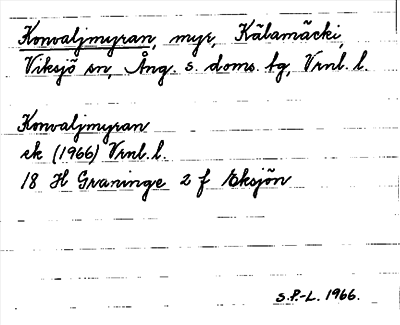 Konvaljmyran, myr, Kälamäcki,
Viksjö sn, Ång. s. doms. tg, Vrnl. l.
Konvaljmyran
ek (1966) Vrnl. l.
18 H Graninge 2 f Eksjön
S.P.-L. 1966.